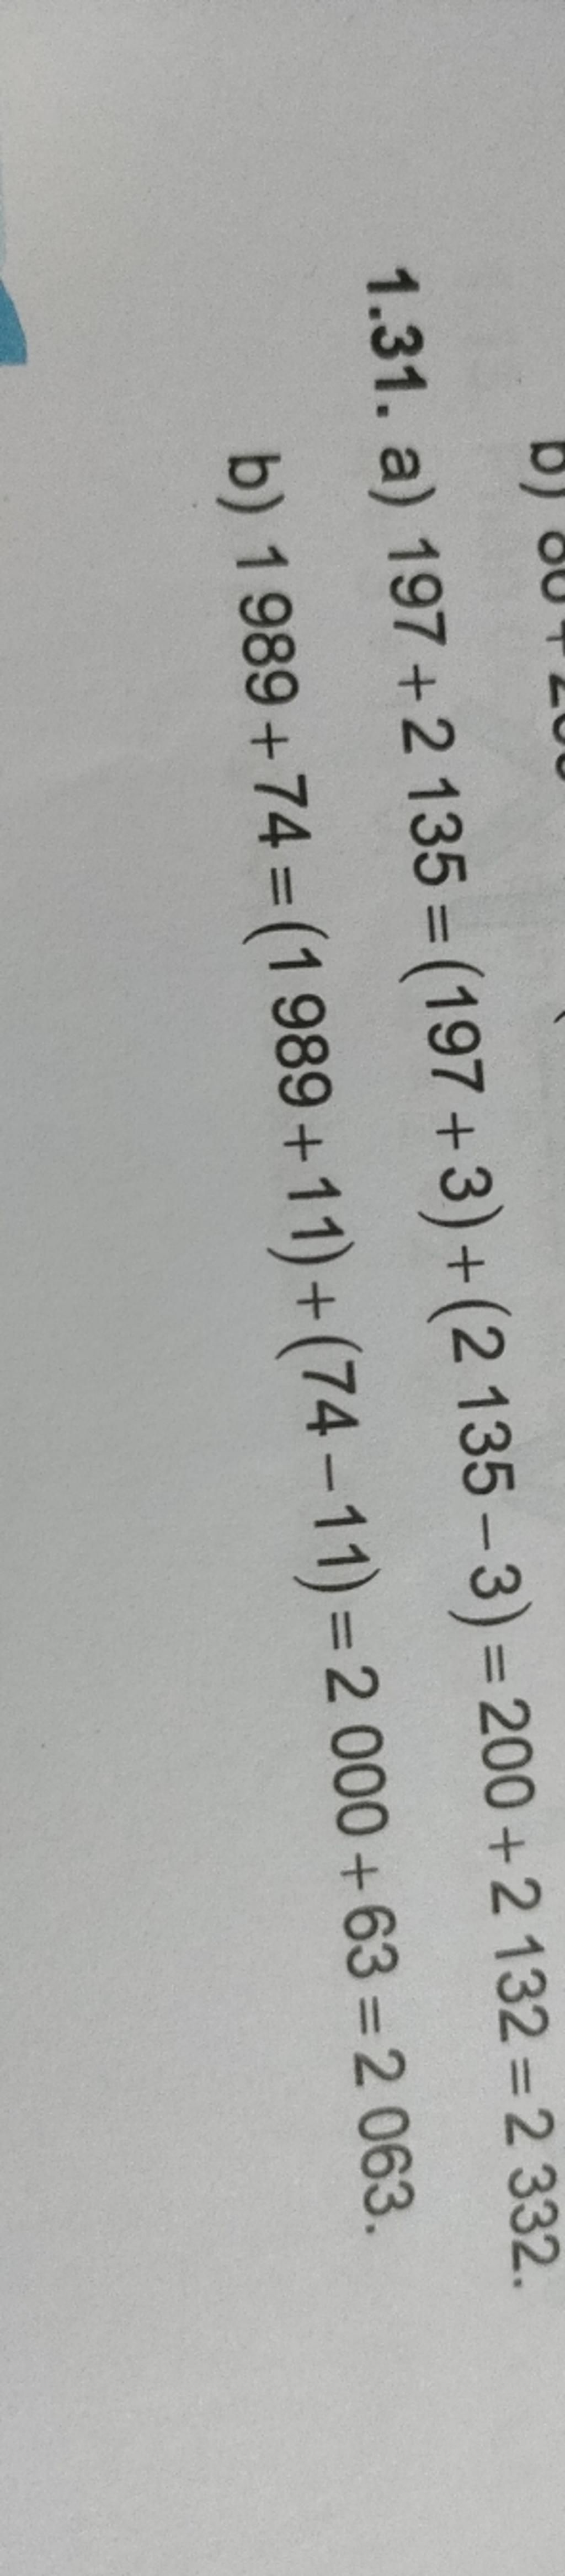 1.31. a) 197 + 2 135 = (197 + 3) + (2 135 – 3) = 200 + 2 132 = 2 332.
b) 1 989 + 74 = (1 989 + 11) + (74 – 11) = 2 000 + 63 = 2 063.